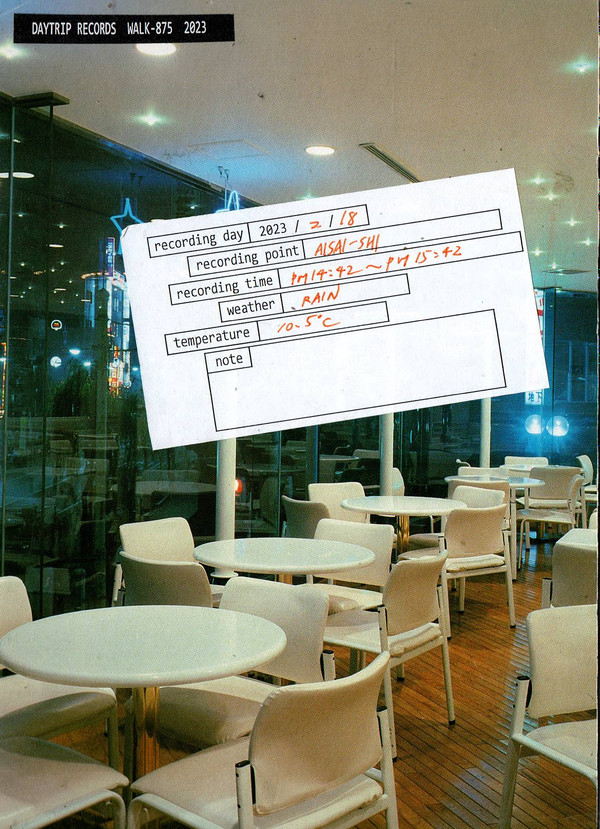 DAYTRIP RECORDS WALK-875 2023
recording day 2023 / 2 / 18
recording point AISAI-SHI
recording time PM14:42 ~ PM15:42
weather RAIN
temperature 10.5°C
note